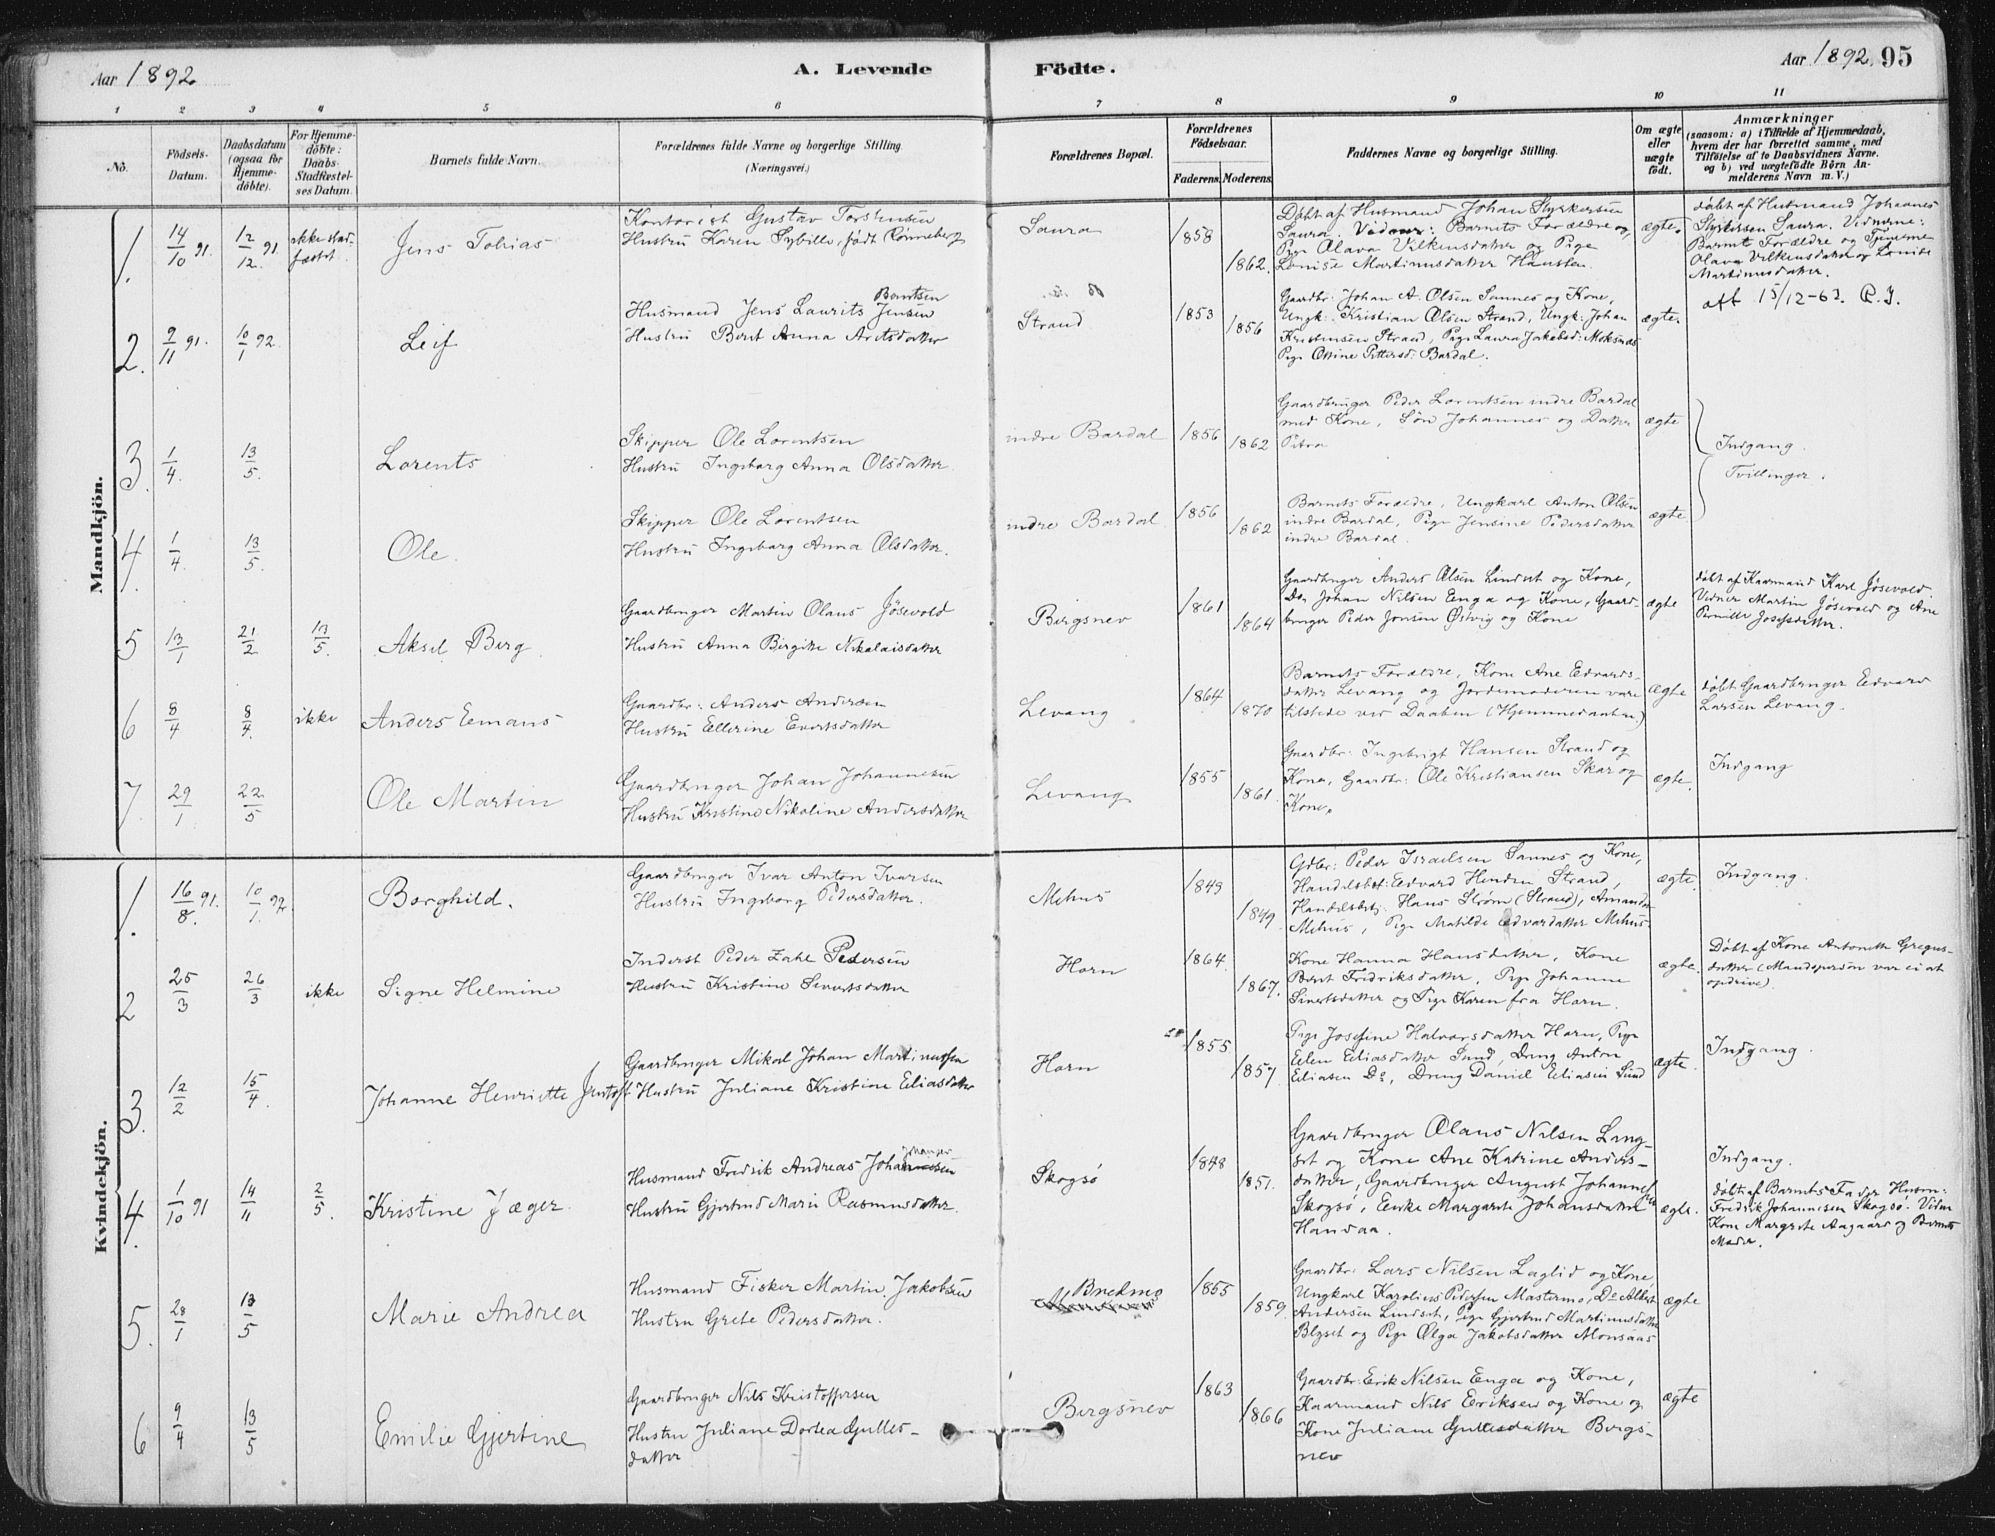 Aar 1892
A. Levende
Födte.
Aar 1892. 95
1 2 3 4 5 6 7 8 9 10 11
No.
Födsels-
Datum.
Daabsdatum
(ogsaa for
Hjemme-
döbte).
For Hjemme-
döbte:
Daabs-
Stadfæstel-
ses Datum.
Barnets fulde Navn.
Forældrenes fulde Navne og borgerlige Stilling
(Næringsvei.)
Forældrenes Bopæl.
Forældrenes
Födselsaar.
Faderens. Moderens.
Faddernes Navne og borgerlige Stilling.
Om ægte
eller
uægte
født.
Anmærkninger
(saasom: a) i Tilfælde af Hjemmedaab,
hvem der har forrettet samme, med
Tilföielse af to Daabsvidners Navne,
og b) ved uægtefödte Börn An-
melderens Navn m. V.)
Mandkjön.
1. 14/10 91. 12/12 91 ikke stad-
fæstet.
Jens Tobias
Kontorist Gustav Torstensen
Hustru Karen Sybille, født Rønneberg
Saura
1858
1862.
Døbt af Husmand Johan Styrkersen
Saura. Vidner: Barnets Forældre og
Pige Olava Vilkensdatter og Pige
Lovise Martinusdatter
ægte.
døbt af Husmand Johannes
Styrkersen Saura. Vidnerne:
Barnets Forældre og Tjenerne
Olava Vilkensdatter og Lovise
Martinusdatter.
2. 9/11 91. 10/1 92.
Leif
Berntsen
Husmand Jens Laurits Jensen
Hustru Berit Anna Arntsdatter
Strand
1853
1856
Gaardbr: Johan A. Olsen Sannes og Kone,
Ungk: Kristian Olsen Strand, Ungk: Johan
Kristensen Strand, Pige Laura Jakobsd: Moksnes
Pige Oline Pettersd: Bardal.
ægte.
att 15/12-63. R.J.
3. 1/4 13/5.
Lorents
Skipper Ole Lorentsen
Hustru Ingeborg Anna Olsdatter.
indre Bardal
1856
1862
Gaardbruger Peder Lorentsen indre Bardal
med Kone, Søn Johannes og Datter
Petra
ægte
Indgang.
Tvillinger.
4. 1/4 13/5.
Ole.
Skipper Ole Lorentsen
Hustru Ingeborg Anna Olsdatter.
indre Bardal.
1856
1862
Barnets Forældre, Ungkarl Anton Olsen
indre Bardal, Pige Jensine Pedersdatter
indre Bardal.
ægte
5 13/1 21/2 13/5.
Aksel Berg
Gaardbruger Martin Olaus Jøsevold
Hustru Anna Birgitte Nikolaisdatter
Bergsnev
1861
1864
Gaardbruger Anders Olsen Lindset og Kone,
Do. Johan Nilsen Enga og Kone, Gaard-
bruger Peder Jonsen Østvig og Kone
ægte
døbt af Kaarmand Karl Jøsevold.
Vidner Martin Jøsevold og Ane
Pernille Josefsdatter.
6 8/4 8/4. ikke
Anders Emans
Gaardbr: Anders Andersen
Hustru Ellerine Evertsdatter
Levang
1864
1870
Barnets Forældre, Kone Ane Edvards-
datter Levang og Jordemoderen vare
tilstede ved Daaben (Hjemmedaaben.)
ægte
døbt Gaardbruger Edvard
Larsen Levang.
7. 29/1 22/5
Ole Martin
Gaardbruger Johan Johannesen
Hustru Kristine Nikoline Andersdatter
Levang
1855
1861.
Gaardbr: Ingebrigt Hansen Strand og
Kone, Gaardbr: Ole Kristiansen Skar og
Kone.
ægte.
Indgang
Kvindekjön.
1. 16/8. 91. 10/1 92.
Borghild.
Gaardbruger Ivar Anton Ivarsen
Hustru Ingeborg Pedersdatter.
Mehus
1849
1849.
Gdbr: Peder Israelsen Sannes og Kone,
Handelsbet: Edvard Strand,
Handelsbetj. Hans Strøm (Strand), Amanda
Mehus, Pige Matilde Edvardatter Mehus.
ægte.
Indgang.
2 25/3 26/3 ikke
Signe Helmine
Inderst Peder Zahl Pedersen
Hustru Kristine Sivertsdatter
Horn
1864.
1867.
Kone Hanna Hansdatter, Kone
Berit Fredriksdatter, Pige Johanne
Sivertsdatter og Pige Karen fra Horn.
ægte.
Døbt af Kone Antonette Gregus-
datter (Mandsperson var ei at
opdrive)
3. 12/2 15/4.
Johanne Henriette Jentoft
Gaardbruger Mikal Johan Martinussen
Hustru Juliane Kristine Eliasdatter
Horn
1855
1857.
Pige Josefine Halvorsdatter Horn, Pige
Ellen Eliasdatter Sund, Dreng Anton
Eliasen Do, Dreng Daniel Eliasen Sund
ægte.
Indgang.
4. 1/10 91 14/11 2/5.
Kristine Jæger.
Husmand Fredrik Andreas Johannesen
Hustru Gjertrud Marie Rasmusdatter.
Skogsø
1848
1851.
Gaardbruger Olaus Nilsen Ling-
set og Kone Ane Katrine Anders-
datter, Gaardbruger August Johannessen
Skogsø, Enke Margarete Johansdatter
Handaa.
ægte.
Indgang.
døbt af Barnets Fader Husm:
Fredrik Johannesen Skogsø. Vidn
Kone Margrete Aagaard og Barnets
Moder.
5. 28/1 13/5
Marie Andrea
Husmand Fisker Martin Jakobsen
Hustru Grete Pedersdatter.
1855
1859.
Gaardbr: Lars Nilsen Laglid og Kone
Ungkarl Karolius Pedersen Mastermo, Do Albert
Andersen Lindset, Pige Gjertrud Martinusdatter
Blyset og Pige Olga Jakobsdatter Monsaas
ægte
6 9/4 13/5
Emilie Gjertine
Gaardbruger Nils Kristoffersen
Hustru Juliane Dortea Gulles-
datter
Bergsnev
1863
1866
Gaardbr: Erik Nilsen Enga og Kone,
Kaarmand Nils Eriksen og Kone og
Kone Juliane Gullesdatter Bergs-
nev
ægte